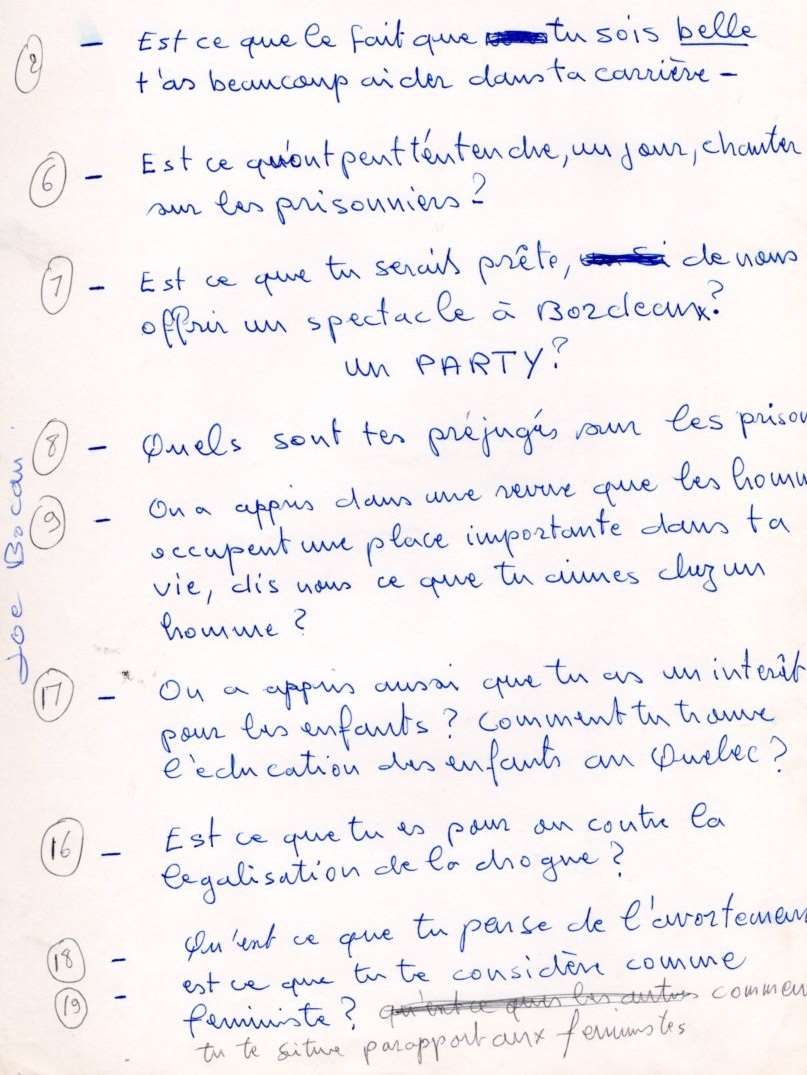 2 - Est ce que le fait que tu sois belle
t'as beaucoup aider dans ta carrière -
6 - Est ce qu'ont peut t'éntendre, un jour, chanter
sur les prisonniers ?
7 - Est ce que tu serais prête, de nous
offrir un spectacle à Bordeaux ?
un PARTY ?
8 - Quels sont tes préjugés sur les prison
9 - On a appris dans une revue que les homm
occupent une place importante dans ta
vie, dis nous ce que tu aimes chez un
homme ?
17 - On a appris aussi que tu as un interêt
pour les enfants ? Comment tu trouve
l'éducation des enfants au Quebec ?
16 - Est ce que tu es pour ou contre la
legalisation de la drogue ?
18 - Qu'est ce que tu pense de l'avortemen
19 - est ce que tu te considère comme
feministe ? qu'est ce que les autres commen
tu te situe parapport aux feministes
Joe Bocan